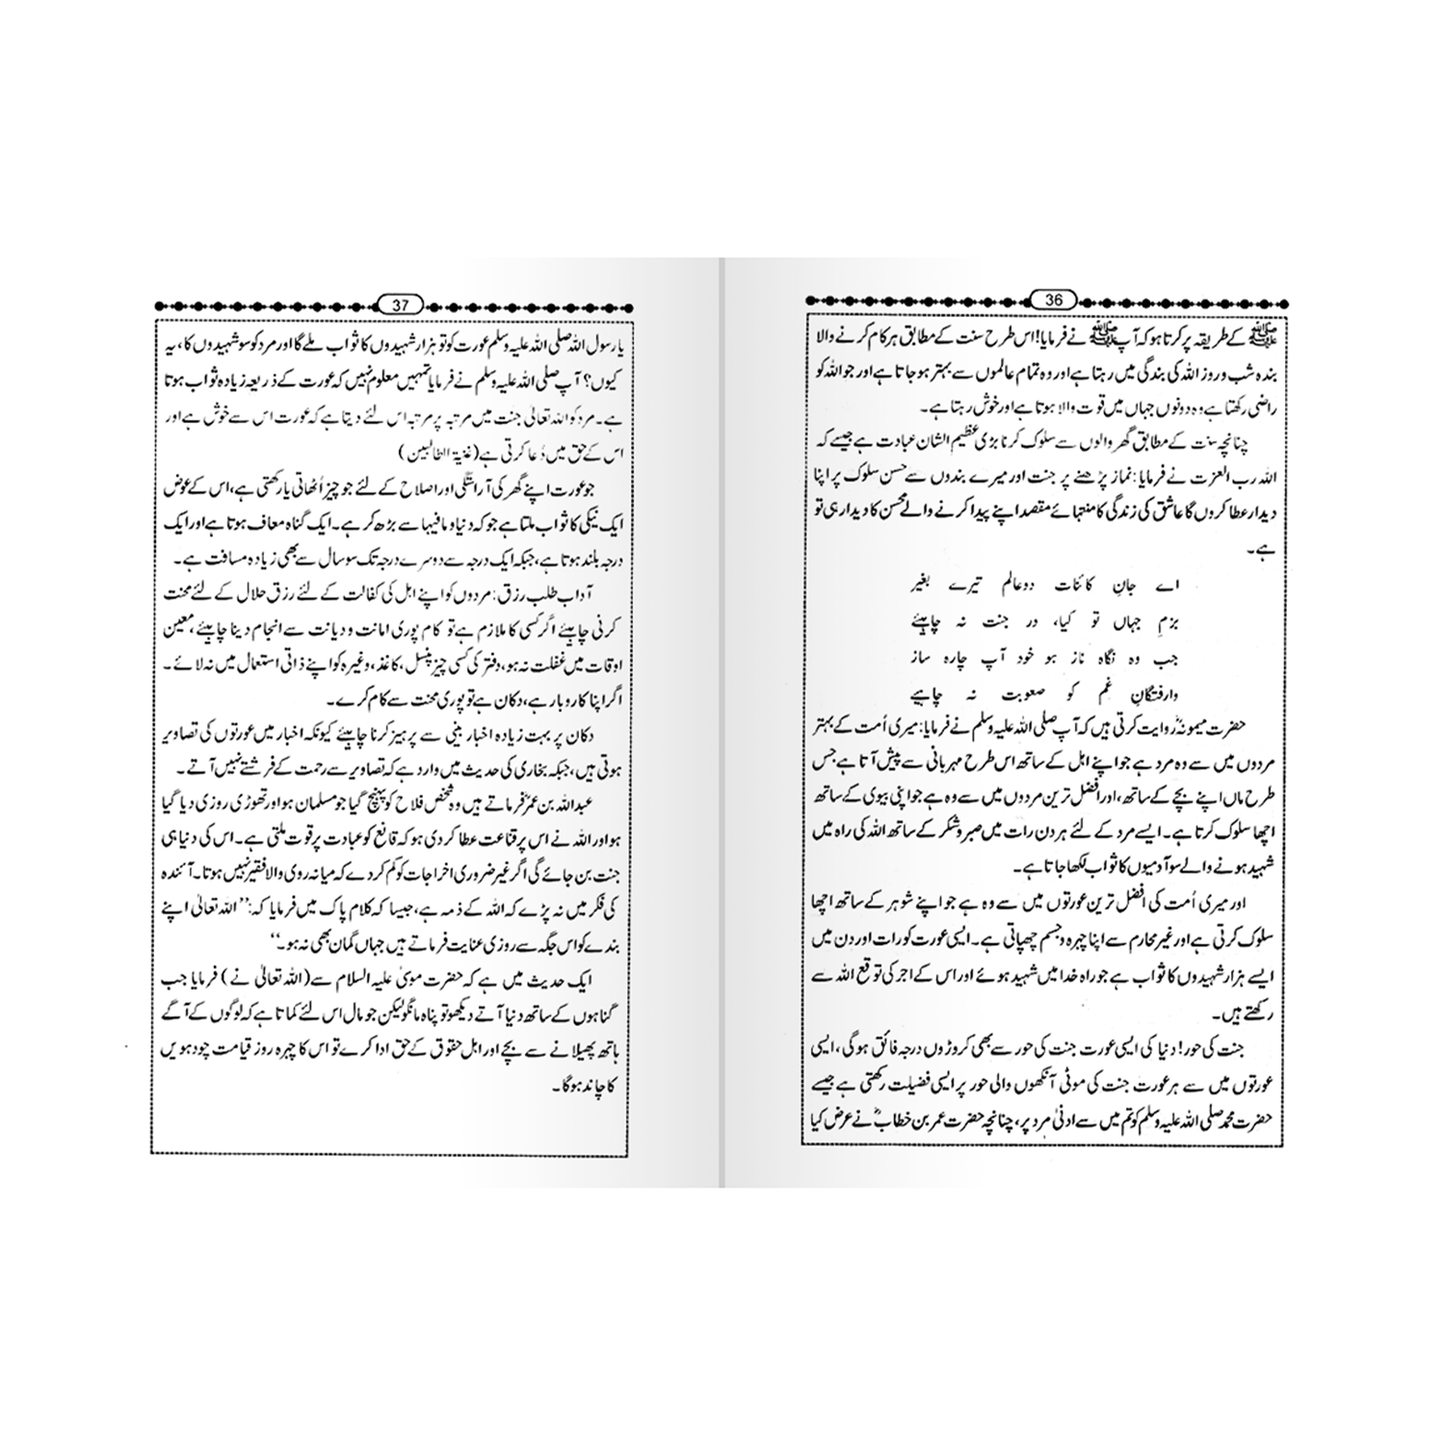 36
ﷺ کے طریقہ پر کرتا ہو کہ آپ ﷺ نے فرمایا! اس طرح سنت کے مطابق ہر کام کرنے والا
بندہ شب و روز اللہ کی بندگی میں رہتا ہے اور وہ تمام عالموں سے بہتر ہو جاتا ہے اور جو اللہ کو
راضی رکھتا ہے وہ دونوں جہاں میں قوت والا ہوتا ہے اور خوش رہتا ہے۔
چنانچہ سنت کے مطابق گھر والوں سے سلوک کرنا بڑی عظیم الشان عبادت ہے جیسے کہ
اللہ رب العزت نے فرمایا: نماز پڑھنے پر جنت اور میرے بندوں سے حسن سلوک پر اپنا
دیدار عطا کروں گا عاشق کی زندگی کا منتہائے مقصد اپنے پیدا کرنے والے محسن کا دیدار ہی تو
ہے۔
اے جانِ کائنات دو عالم تیرے بغیر
بزمِ جہاں تو کیا، در جنت نہ چاہئے
جب وہ نگاہ ناز ہو خود آپ چارہ ساز
وارفتگانِ غم کو صعوبت نہ چاہیے
حضرت میمونہؓ روایت کرتی ہیں کہ آپ صلی اللہ علیہ وسلم نے فرمایا: میری اُمت کے بہتر
مردوں میں سے وہ مرد ہے جو اپنے اہل کے ساتھ اس طرح مہربانی سے پیش آتا ہے جس
طرح ماں اپنے بچے کے ساتھ، اور افضل ترین مردوں میں سے وہ ہے جو اپنی بیوی کے ساتھ
اچھا سلوک کرتا ہے۔ ایسے مرد کے لئے ہر دن رات میں صبر و شکر کے ساتھ اللہ کی راہ میں
شہید ہونے والے سو آدمیوں کا ثواب لکھا جاتا ہے۔
اور میری اُمت کی افضل ترین عورتوں میں سے وہ ہے جو اپنے شوہر کے ساتھ اچھا
سلوک کرتی ہے اور غیر محارم سے اپنا چہرہ و جسم چھپاتی ہے۔ ایسی عورت کو رات اور دن میں
ایسے ہزار شہیدوں کا ثواب ہے جو راہ خدا میں شہید ہوئے اور اس کے اجر کی توقع اللہ سے
رکھتے ہیں۔
جنت کی حور! دنیا کی ایسی عورت جنت کی حور سے بھی کروڑوں درجہ فائق ہوگی، ایسی
عورتوں میں سے ہر عورت جنت کی موٹی آنکھوں والی حور پر ایسی فضیلت رکھتی ہے جیسے
حضرت محمد صلی اللہ علیہ وسلم کو تم میں سے ادنیٰ مرد پر، چنانچہ حضرت عمر بن خطابؓ نے عرض کیا
37
یا رسول اللہ صلی اللہ علیہ وسلم عورت کو تو ہزار شہیدوں کا ثواب ملے گا اور مرد کو سو شہیدوں کا، یہ
کیوں؟ آپ صلی اللہ علیہ وسلم نے فرمایا تمہیں معلوم نہیں کہ عورت کے ذریعہ زیادہ ثواب ہوتا
ہے۔ مرد کو اللہ تعالیٰ جنت میں مرتبہ پر مرتبہ اس لئے دیتا ہے کہ عورت اس سے خوش ہے اور
اس کے حق میں دُعا کرتی ہے (غنیۃ الطالبین)
جو عورت اپنے گھر کی آرائشگی اور اصلاح کے لئے جو چیز اُٹھاتی یا رکھتی ہے، اس کے عوض
ایک نیکی کا ثواب ملتا ہے جو کہ دنیا و مافیہا سے بڑھ کر ہے۔ ایک گناہ معاف ہوتا ہے اور ایک
درجہ بلند ہوتا ہے، جبکہ ایک درجہ سے دوسرے درجہ تک سو سال سے بھی زیادہ مسافت ہے۔
آداب طلب رزق: مردوں کو اپنے اہل کی کفالت کے لئے رزق حلال کے لئے محنت
کرنی چاہیئے اگر کسی کا ملازم ہے تو کام پوری امانت و دیانت سے انجام دینا چاہیئے، معین
اوقات میں غفلت نہ ہو، دفتر کی کسی چیز پنسل، کاغذ، وغیرہ کو اپنے ذاتی استعمال میں نہ لائے۔
اگر اپنا کاروبار ہے، دکان ہے تو پوری محنت سے کام کرے۔
دکان پر بہت زیادہ اخبار بینی سے پرہیز کرنا چاہیئے کیونکہ اخبار میں عورتوں کی تصاویر
ہوتی ہیں، جبکہ بخاری کی حدیث میں وارد ہے کہ تصاویر سے رحمت کے فرشتے نہیں آتے۔
عبداللہ بن عمرؓ فرماتے ہیں وہ شخص فلاح کو پہنچ گیا جو مسلمان ہو اور تھوڑی روزی دیا گیا
ہو اور اللہ نے اس پر قناعت عطا کر دی ہو کہ قانع کو عبادت پر قوت ملتی ہے۔ اس کی دنیا ہی
جنت بن جائے گی اگر غیر ضروری اخراجات کو کم کر دے کہ میانہ روی والا فقیر نہیں ہوتا۔ آئندہ
کی فکر میں نہ پڑے کہ اللہ کے ذمہ ہے، جیسا کہ کلام پاک میں فرمایا کہ: ’’اللہ تعالیٰ اپنے
بندے کو اس جگہ سے روزی عنایت فرماتے ہیں جہاں گمان بھی نہ ہو۔‘‘
ایک حدیث میں ہے کہ حضرت موسیٰ علیہ السلام سے (اللہ تعالیٰ نے) فرمایا جب
گناہوں کے ساتھ دنیا آتے دیکھو تو پناہ مانگو لیکن جو مال اس لئے کماتا ہے کہ لوگوں کے آگے
ہاتھ پھیلانے سے بچے اور اہل حقوق کے حق ادا کرے تو اس کا چہرہ روز قیامت چودہویں
کا چاند ہوگا۔